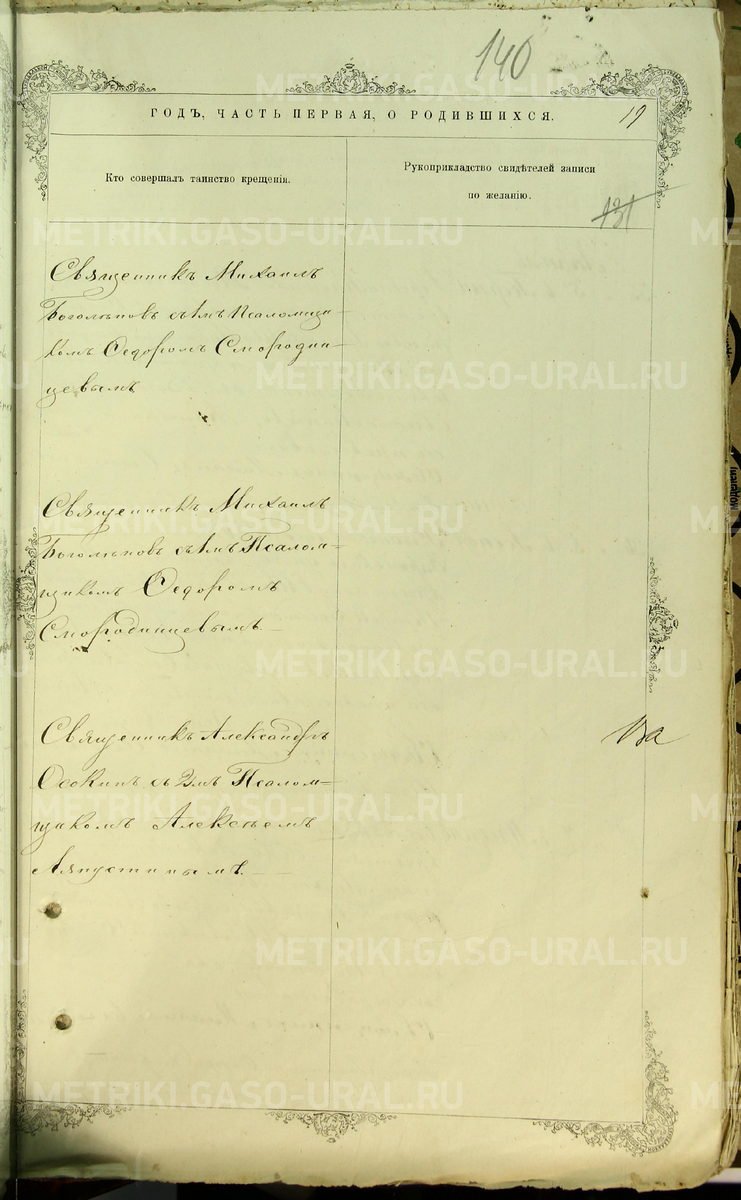 140
ГОДЪ, ЧАСТЬ ПЕРВАЯ, О РОДИВШИХСЯ.
19
Кто совершалъ таинство крещенія.
Рукоприкладство свидѣтелей записи
по желанію.
131
Священникъ Михаилъ
Боголѣповъ съ 1мъ Псаломщи-
комъ Ѳедоромъ Смородин-
цевымъ
Священникъ Михаилъ
Боголѣповъ съ 1мъ Псалом-
щикомъ Ѳедоромъ
Смородинцевымъ.
Священникъ Александръ
Осокинъ съ 2мъ Псалом-
щикомъ Алексѣемъ
Ляпустинымъ.
METRIKI.GASO-URAL.RU